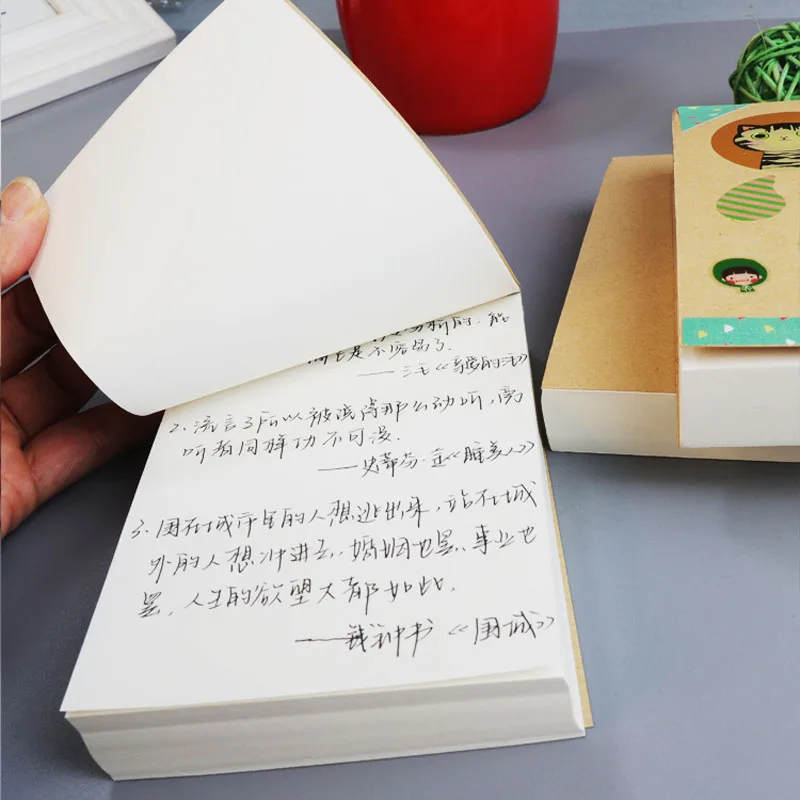 新的.能
不容易了.
——三毛《亲爱的三毛》
2. 流言之所以被流传那么动听,旁
听者同样功不可没.
——史蒂芬·金《
3. 围在城市里的人想逃出来,站在城
外的人想冲进去,婚姻也罢,事业也
罢,人生的欲望大都如此.
——钱钟书《围城》